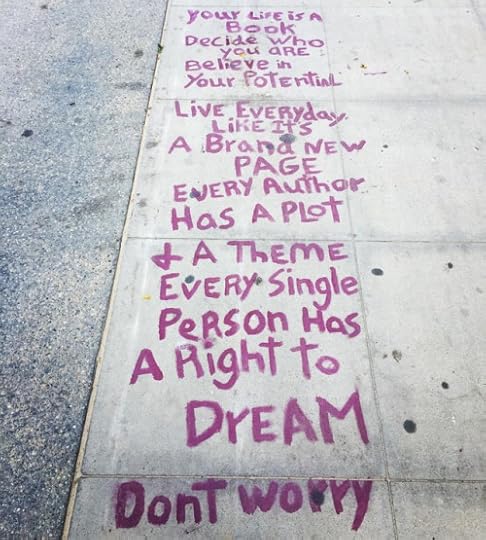 Your Life is A
Book
Decide Who
you ARE
Believe in
Your Potential
Live Everyday
Like It's
A Brand New
PAGE
Every Author
Has A Plot
+ A Theme
Every Single
Person Has
A Right to
DrEAM
Dont worry